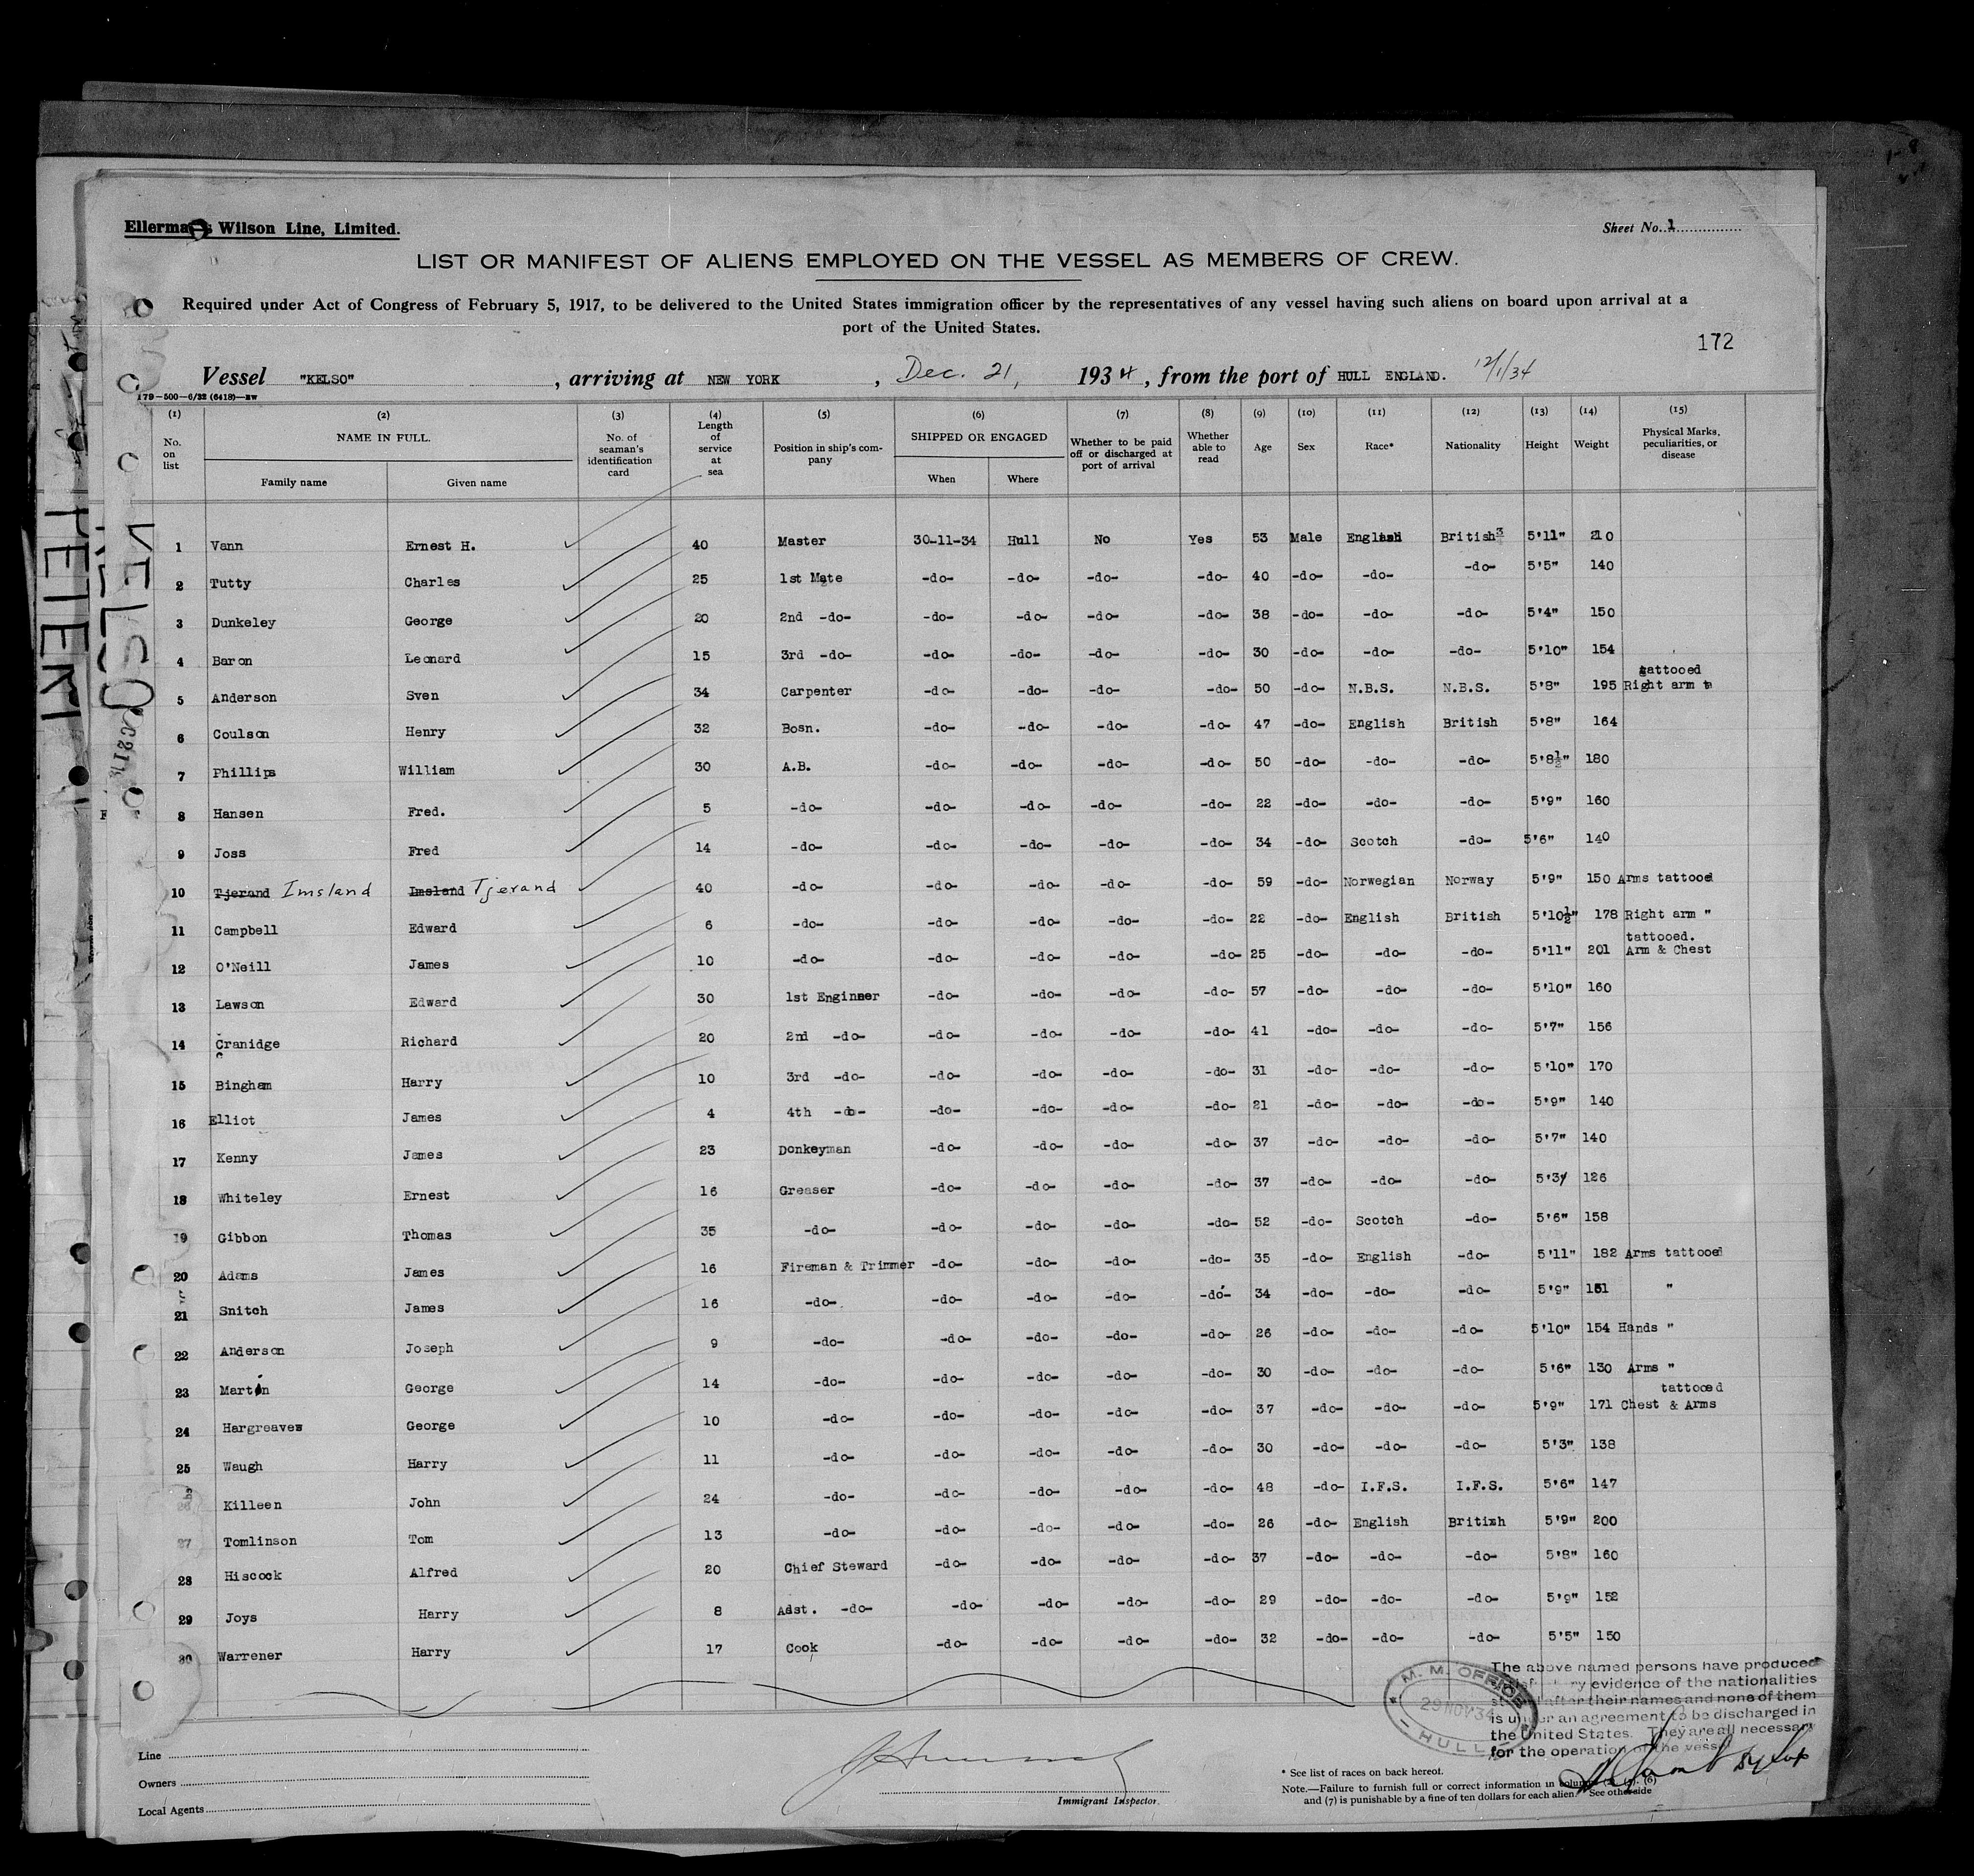 Ellerman's Wilson Line, Limited.
Sheet No. 1
LIST OR MANIFEST OF ALIENS EMPLOYED ON THE VESSEL AS MEMBERS OF CREW.
Required under Act of Congress of February 5, 1917, to be delivered to the United States immigration officer by the representatives of any vessel having such aliens on board upon arrival at a
port of the United States.
172
Vessel "KELSO", arriving at NEW YORK, Dec. 21, 1934, from the port of HULL ENGLAND. 12/1/34
179-500-6/32 (6418)
(1) (2) (3) (4) (5) (6) (7) (8) (9) (10) (11) (12) (13) (14) (15)
No. on list NAME IN FULL. Family name Given name No. of seaman's identification card Length of service at sea Position in ship's company SHIPPED OR ENGAGED When Where Whether to be paid off or discharged at port of arrival Whether able to read Age Sex Race* Nationality Height Weight Physical Marks, peculiarities, or disease
1 Vann Ernest H. 40 Master 30-11-34 Hull No Yes 53 Male English British 5'11" 210
2 Tutty Charles 25 1st Mate -do- -do- -do- -do- 40 -do- -do- -do- 5'5" 140
3 Dunkeley George 20 2nd -do- -do- -do- -do- -do- 38 -do- -do- -do- 5'4" 150
4 Baron Leonard 15 3rd -do- -do- -do- -do- -do- 30 -do- -do- -do- 5'10" 154
5 Anderson Sven 34 Carpenter -do- -do- -do- -do- 50 -do- N.B.S. N.B.S. 5'8" 195 Right arm tattooed
6 Coulson Henry 32 Bosn. -do- -do- -do- -do- 47 -do- English British 5'8" 164
7 Phillips William 30 A.B. -do- -do- -do- -do- 50 -do- -do- -do- 5'8½" 180
8 Hansen Fred. 5 -do- -do- -do- -do- -do- 22 -do- -do- -do- 5'9" 160
9 Joss Fred 14 -do- -do- -do- -do- -do- 34 -do- Scotch -do- 5'6" 140
10 Tjerand Imsland Imsland Tjerand 40 -do- -do- -do- -do- -do- 59 -do- Norwegian Norway 5'9" 150 Arms tattooed
11 Campbell Edward 6 -do- -do- -do- -do- -do- 22 -do- English British 5'10½" 178 Right arm "
12 O'Neill James 10 -do- -do- -do- -do- -do- 25 -do- -do- -do- 5'11" 201 tattooed. Arm & Chest
13 Lawson Edward 30 1st Enginner -do- -do- -do- -do- 57 -do- -do- -do- 5'10" 160
14 Cranidge Richard 20 2nd -do- -do- -do- -do- -do- 41 -do- -do- -do- 5'7" 156
15 Bingham Harry 10 3rd -do- -do- -do- -do- -do- 31 -do- -do- -do- 5'10" 170
16 Elliot James 4 4th -do- -do- -do- -do- -do- 21 -do- -do- -do- 5'9" 140
17 Kenny James 23 Donkeyman -do- -do- -do- -do- 37 -do- -do- -do- 5'7" 140
18 Whiteley Ernest 16 Greaser -do- -do- -do- -do- 37 -do- -do- -do- 5'3" 126
19 Gibbon Thomas 35 -do- -do- -do- -do- -do- 52 -do- Scotch -do- 5'6" 158
20 Adams James 16 Fireman & Trimmer -do- -do- -do- -do- 35 -do- English -do- 5'11" 182 Arms tattooed
21 Snitch James 16 -do- -do- -do- -do- -do- 34 -do- -do- -do- 5'9" 151 "
22 Anderson Joseph 9 -do- -do- -do- -do- -do- 26 -do- -do- -do- 5'10" 154 Hands "
23 Martin George 14 -do- -do- -do- -do- -do- 30 -do- -do- -do- 5'6" 130 Arms "
24 Hargreaves George 10 -do- -do- -do- -do- -do- 37 -do- -do- -do- 5'9" 171 tattooed Chest & Arms
25 Waugh Harry 11 -do- -do- -do- -do- -do- 30 -do- -do- -do- 5'3" 138
26 Killeen John 24 -do- -do- -do- -do- -do- 48 -do- I.F.S. I.F.S. 5'6" 147
27 Tomlinson Tom 13 -do- -do- -do- -do- -do- 26 -do- English British 5'9" 200
28 Hiscock Alfred 20 Chief Steward -do- -do- -do- -do- 37 -do- -do- -do- 5'8" 160
29 Joys Harry 8 Asst. -do- -do- -do- -do- -do- 29 -do- -do- -do- 5'9" 152
30 Warrener Harry 17 Cook -do- -do- -do- -do- 32 -do- -do- -do- 5'5" 150
M. M. OFFICE
29 NOV 34
HULL
The above named persons have produced
satisfactory evidence of the nationalities
stated after their names and none of them
is under an agreement to be discharged in
the United States. They are all necessary
for the operation of the vessel
Line
Owners
Local Agents
Immigrant Inspector.
* See list of races on back hereof.
Note.—Failure to furnish full or correct information in columns (2), (5), (6)
and (7) is punishable by a fine of ten dollars for each alien. See otherside
KELSO
KELSO